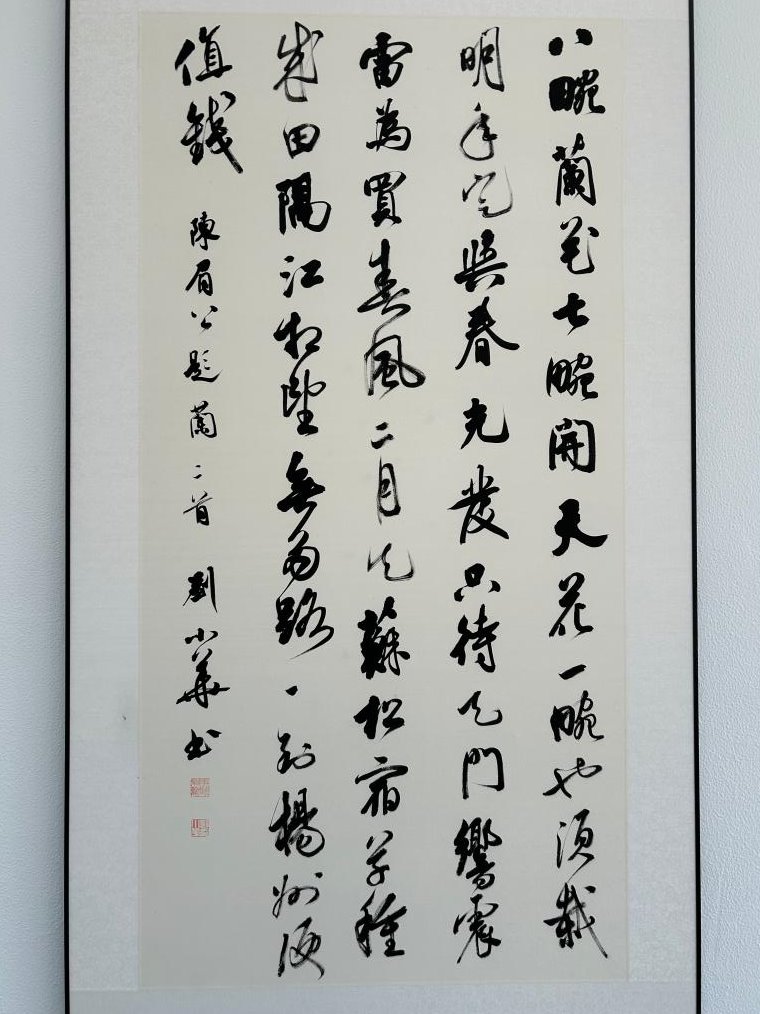 八畹蘭花七畹開天花一畹也須栽
明年定與春光發只待天門響震
雷為買春風二月天蘇松宿草種
成田隔江相望無多路一到楊州便
值錢 陳眉公題蘭二首 劉小華书